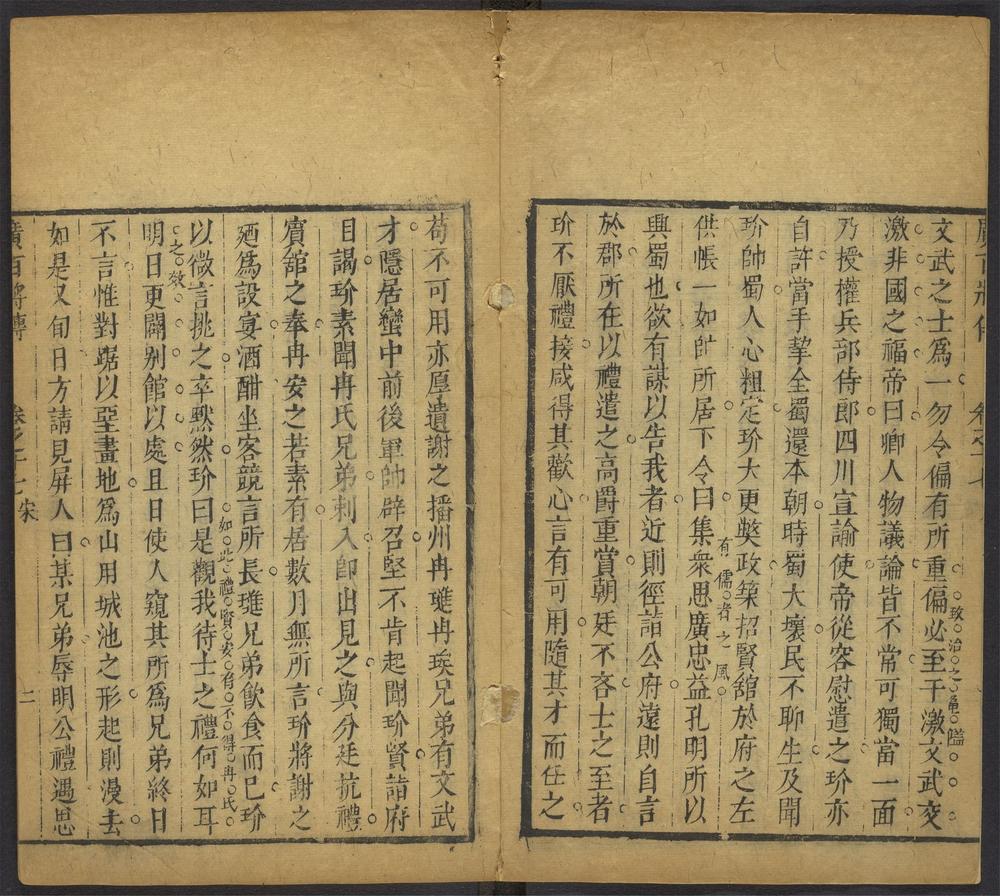 廣百將傳　卷之二七
文武之士爲一勿令偏有所重偏必至于激文武交
致治之龜鑑
激非國之福帝曰卿人物議論皆不常可獨當一面
乃授權兵部侍郎四川宣諭使帝從容慰遣之玠亦
自許當手挈全蜀還本朝時蜀大壞民不聊生及聞
玠帥蜀人心粗定玠大更獘政築招賢舘於府之左
有儒者之風
供帳一如帥所居下令曰集衆思廣忠益孔明所以
興蜀也欲有謀以告我者近則徑詣公府遠則自言
於郡所在以禮遣之高爵重賞朝廷不吝士之至者
玠不厭禮接咸得其歡心言有可用隨其才而任之
苟不可用亦厚遺謝之播州冉璡冉璞兄弟有文武
才隱居蠻中前後軍帥辟召堅不肯起聞玠賢詣府
自謁玠素聞冉氏兄弟刺入卽出見之與分廷抗禮
賓舘之奉冉安之若素有居數月無所言玠將謝之
廼爲設宴酒酣坐客競言所長璡兄弟飮食而已玠
如此禮賢安有不得冉氏
之效
以微言挑之卒默然玠曰是觀我待士之禮何如耳
明日更闢别館以處且日使人窺其所爲兄弟終日
不言惟對踞以堊畫地爲山川城池之形起則漫去
如是又旬日方請見屏人曰某兄弟辱明公禮遇思
廣百將傳　卷之二七　宋　二